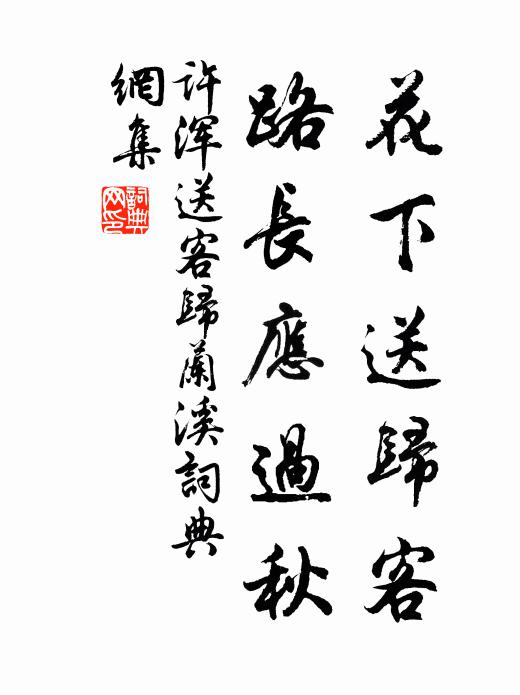 花下送歸客
路長應過秋
許渾送客歸蘭溪詞典
網集
詞典
网印